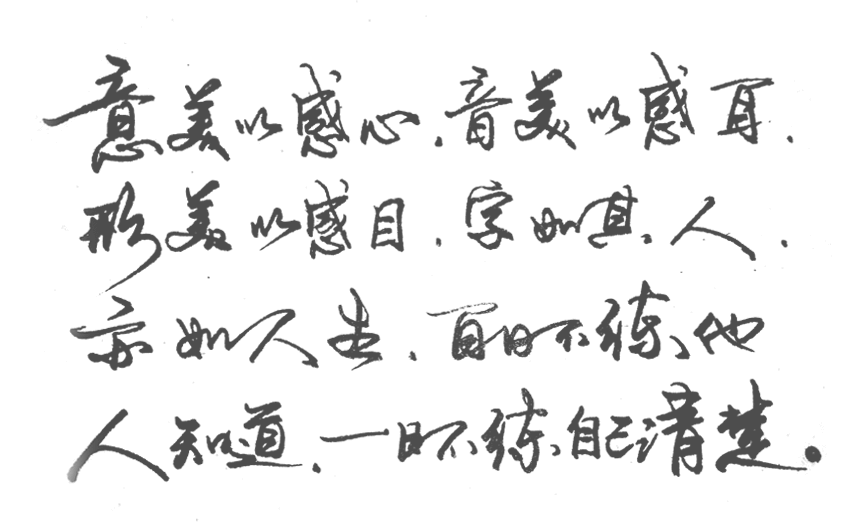 意美以感心,音美以感耳,
形美以感目,字如其人,
亦如人生,百日不练,他
人知道,一日不练,自己清楚。